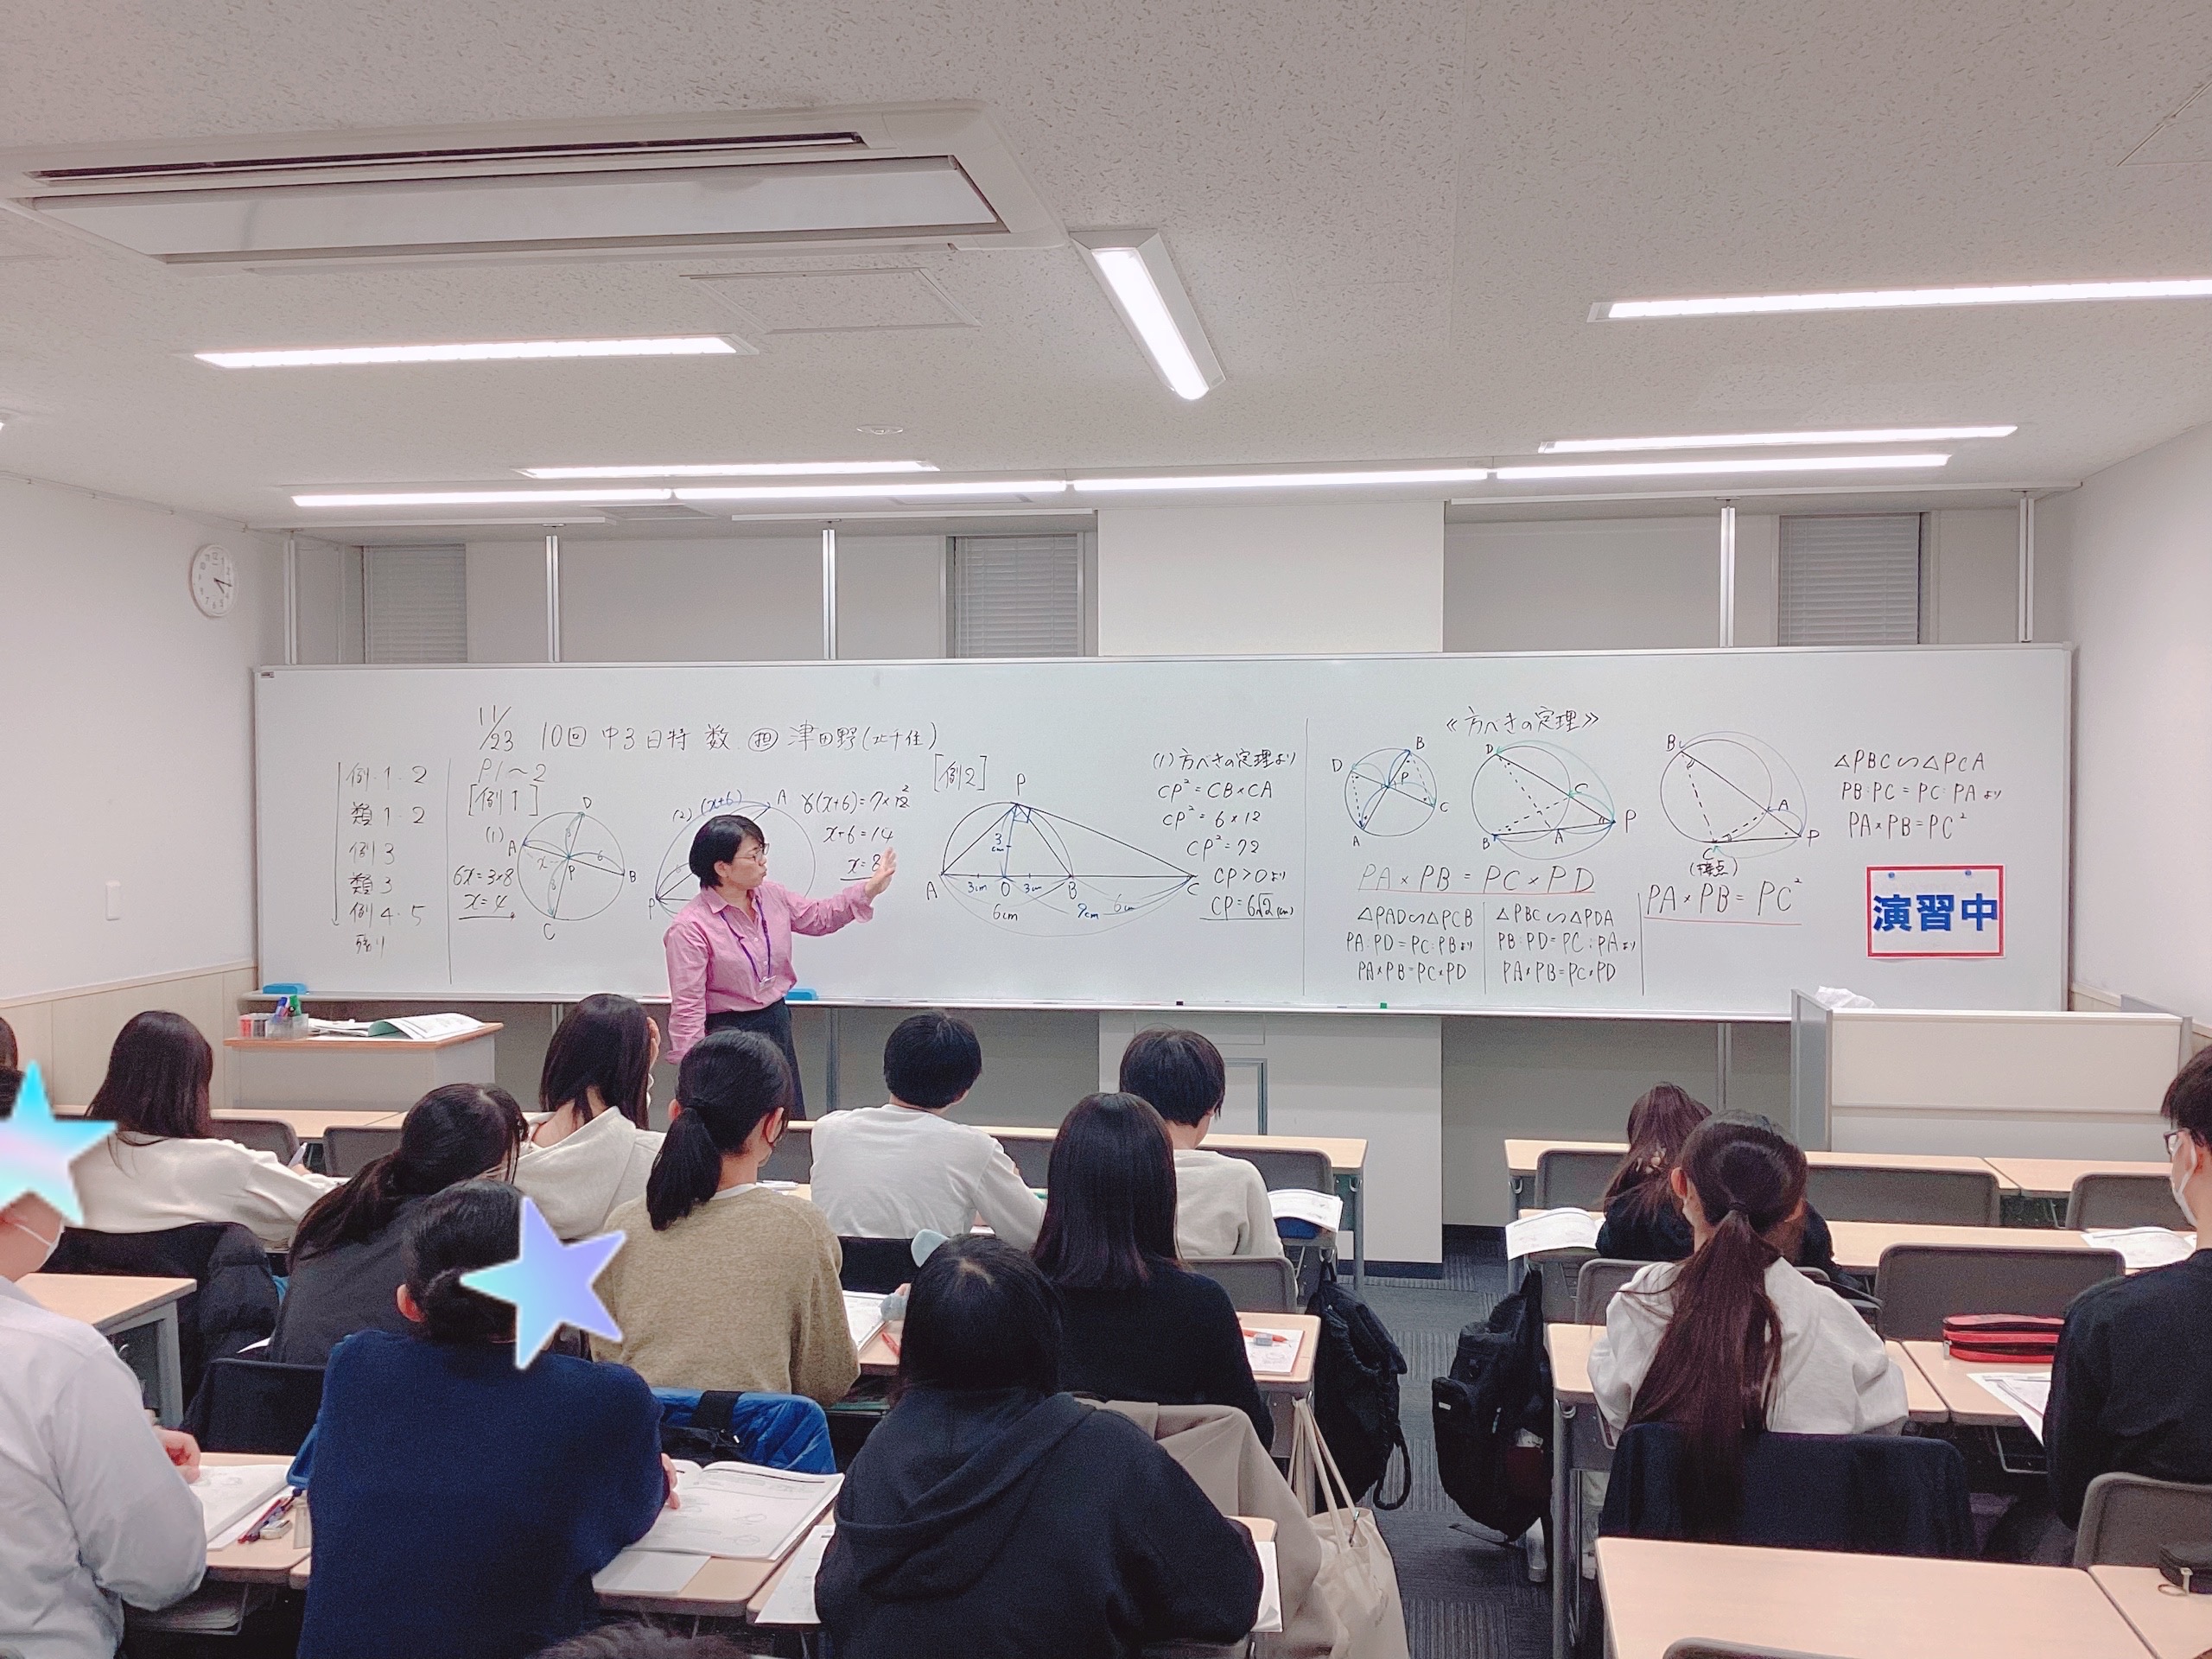 11/23 10回 中3日特 数 担 津田野(北千住)
例1・2
類1・2
例3
類3
例4・5
残り
P1~2
[例1]
(1)
A
D
B
C
P
x
3
8
6
6x=3×8
x=4
(2)
(x+6)
A
P
8(x+6)=7×
x+6=14
x=8
[例2]
P
3cm
A
3cm
O
3cm
B
C
6cm
6cm
(1)方べきの定理より
CP²=CB×CA
CP²=6×12
CP²=72
CP>0より
CP=6√2(cm)
≪方べきの定理≫
D
B
P
C
A
D
C
P
B
A
PA×PB=PC×PD
△PAD∽△PCB
PA:PD=PC:PBより
PA×PB=PC×PD
△PBC∽△PDA
PB:PD=PC:PAより
PA×PB=PC×PD
B
A
P
C
(接点)
PA×PB=PC²
△PBC∽△PCA
PB:PC=PC:PAより
PA×PB=PC²
演習中